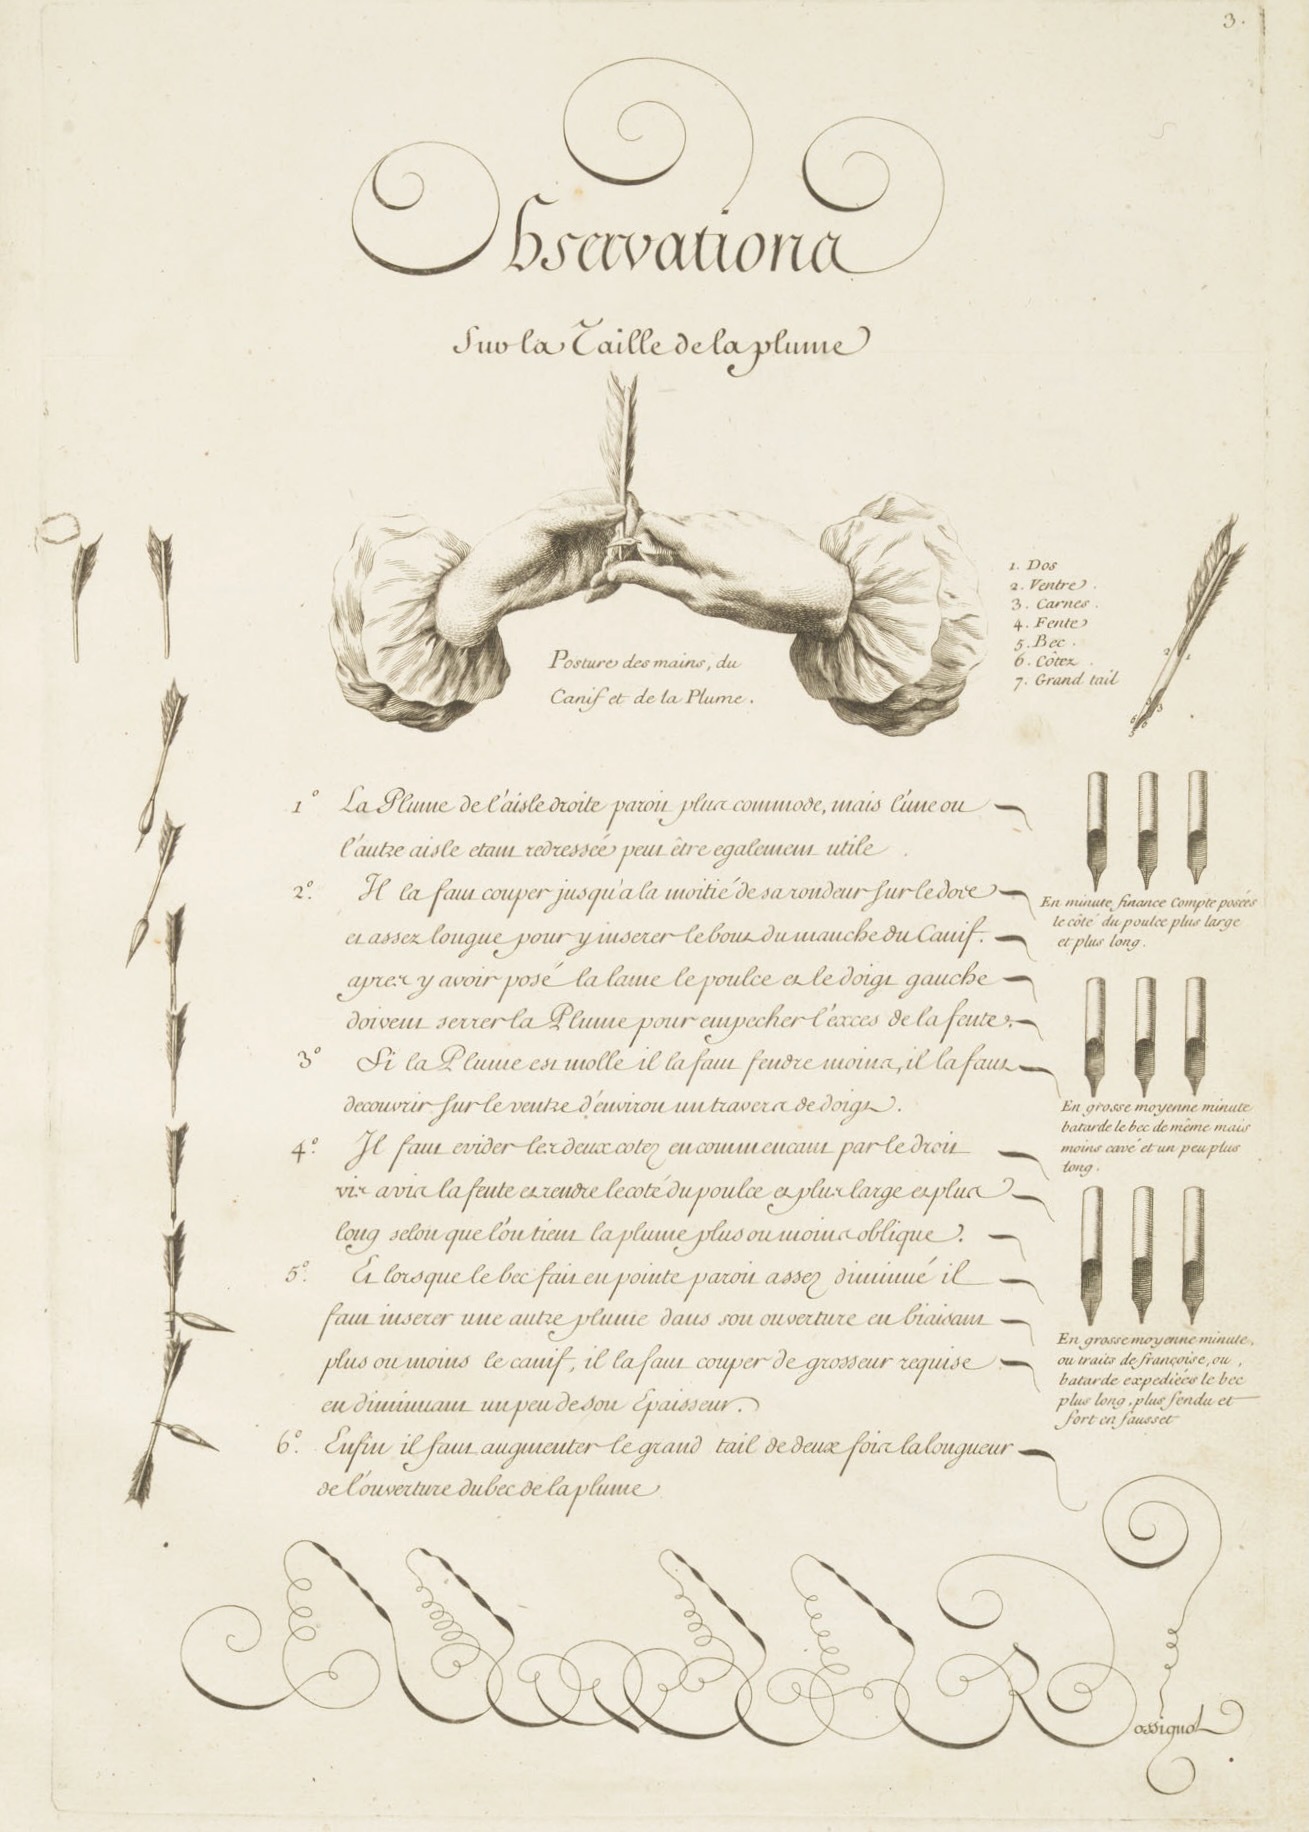 3.
Observations
Sur la Taille de la plume
Posture des mains, du
Canif et de la Plume.
1. Dos
2. Ventre.
3. Carnes.
4. Fente
5. Bec.
6. Côtez.
7. Grand tail
2 1
4 3
6 6
5
1º La Plume de l'aisle droite paroit plus commode, mais l'une ou
l'autre aisle etant redressée peut être egalement utile.
2º. Il la faut couper jusqu'a la moitié de sa rondeur sur le dos
et assez longue pour y inserer le bout du manche du Canif.
apres y avoir posé la lame le poulce et le doigt gauche
doivent serrer la Plume pour empecher l'exces de la fente.
3º Si la Plume est molle il la faut fendre moins, il la faut
decouvrir sur le ventre d'environ un travers de doigt.
4º. Il faut evider les deux cotez en commencant par le droit
vis a vis la fente et rendre le coté du poulce et plus large et plus
long selon que l'on tient la plume plus ou moins oblique.
5º. Et lorsque le bec fait en pointe paroit assez diminué il
faut inserer une autre plume dans son ouverture en biaisant
plus ou moins le canif, il la faut couper de grosseur requise
en diminuant un peu de son Epaisseur.
6º. Enfin il faut augmenter le grand tail de deux fois la longueur
de l'ouverture du bec de la plume
En minute, finance Compte posées
le côté du poulce plus large
et plus long.
En grosse moyenne minute
batarde le bec de même mais
moins cavé et un peu plus
long.
En grosse moyenne minute,
ou traits de françoise, ou,
batarde expediées le bec
plus long, plus fendu et
fort en fausset
Rossignol